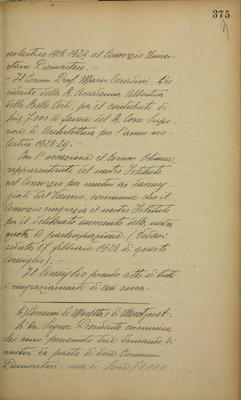 375
scolastico 1928-1929 al Consorzio Univer-
sitario Piemontese. -
- Il Comm. Prof. Mario Ceradini. Pre-
sidente della R. Accademia Albertina
delle Belle Arti, pel contributo di
Lire 7.000 a favore del R. Corso Supe-
riore di Architettura per l'anno sco-
lastico 1928-29. -
Con l'occasione il Comm.
rappresentante del nostro Istituto
nel Consorzio per
dal comunica che il
Consorzio ringrazia il nostro Istituto
per il deliberato aumento della nostra
quota di partecipazione (vedasi
seduta 17 febbraio 1928 di questo
Consiglio). -
Il Consiglio prende atto di tutti
i ringraziamenti di cui sovra.
b) Comuni di Moretta, e di
Il Sig. Presidente comunica
che sono pervenute due domande di
mutui da parte di due Comuni
Piemontesi: uno di Lire 70.000